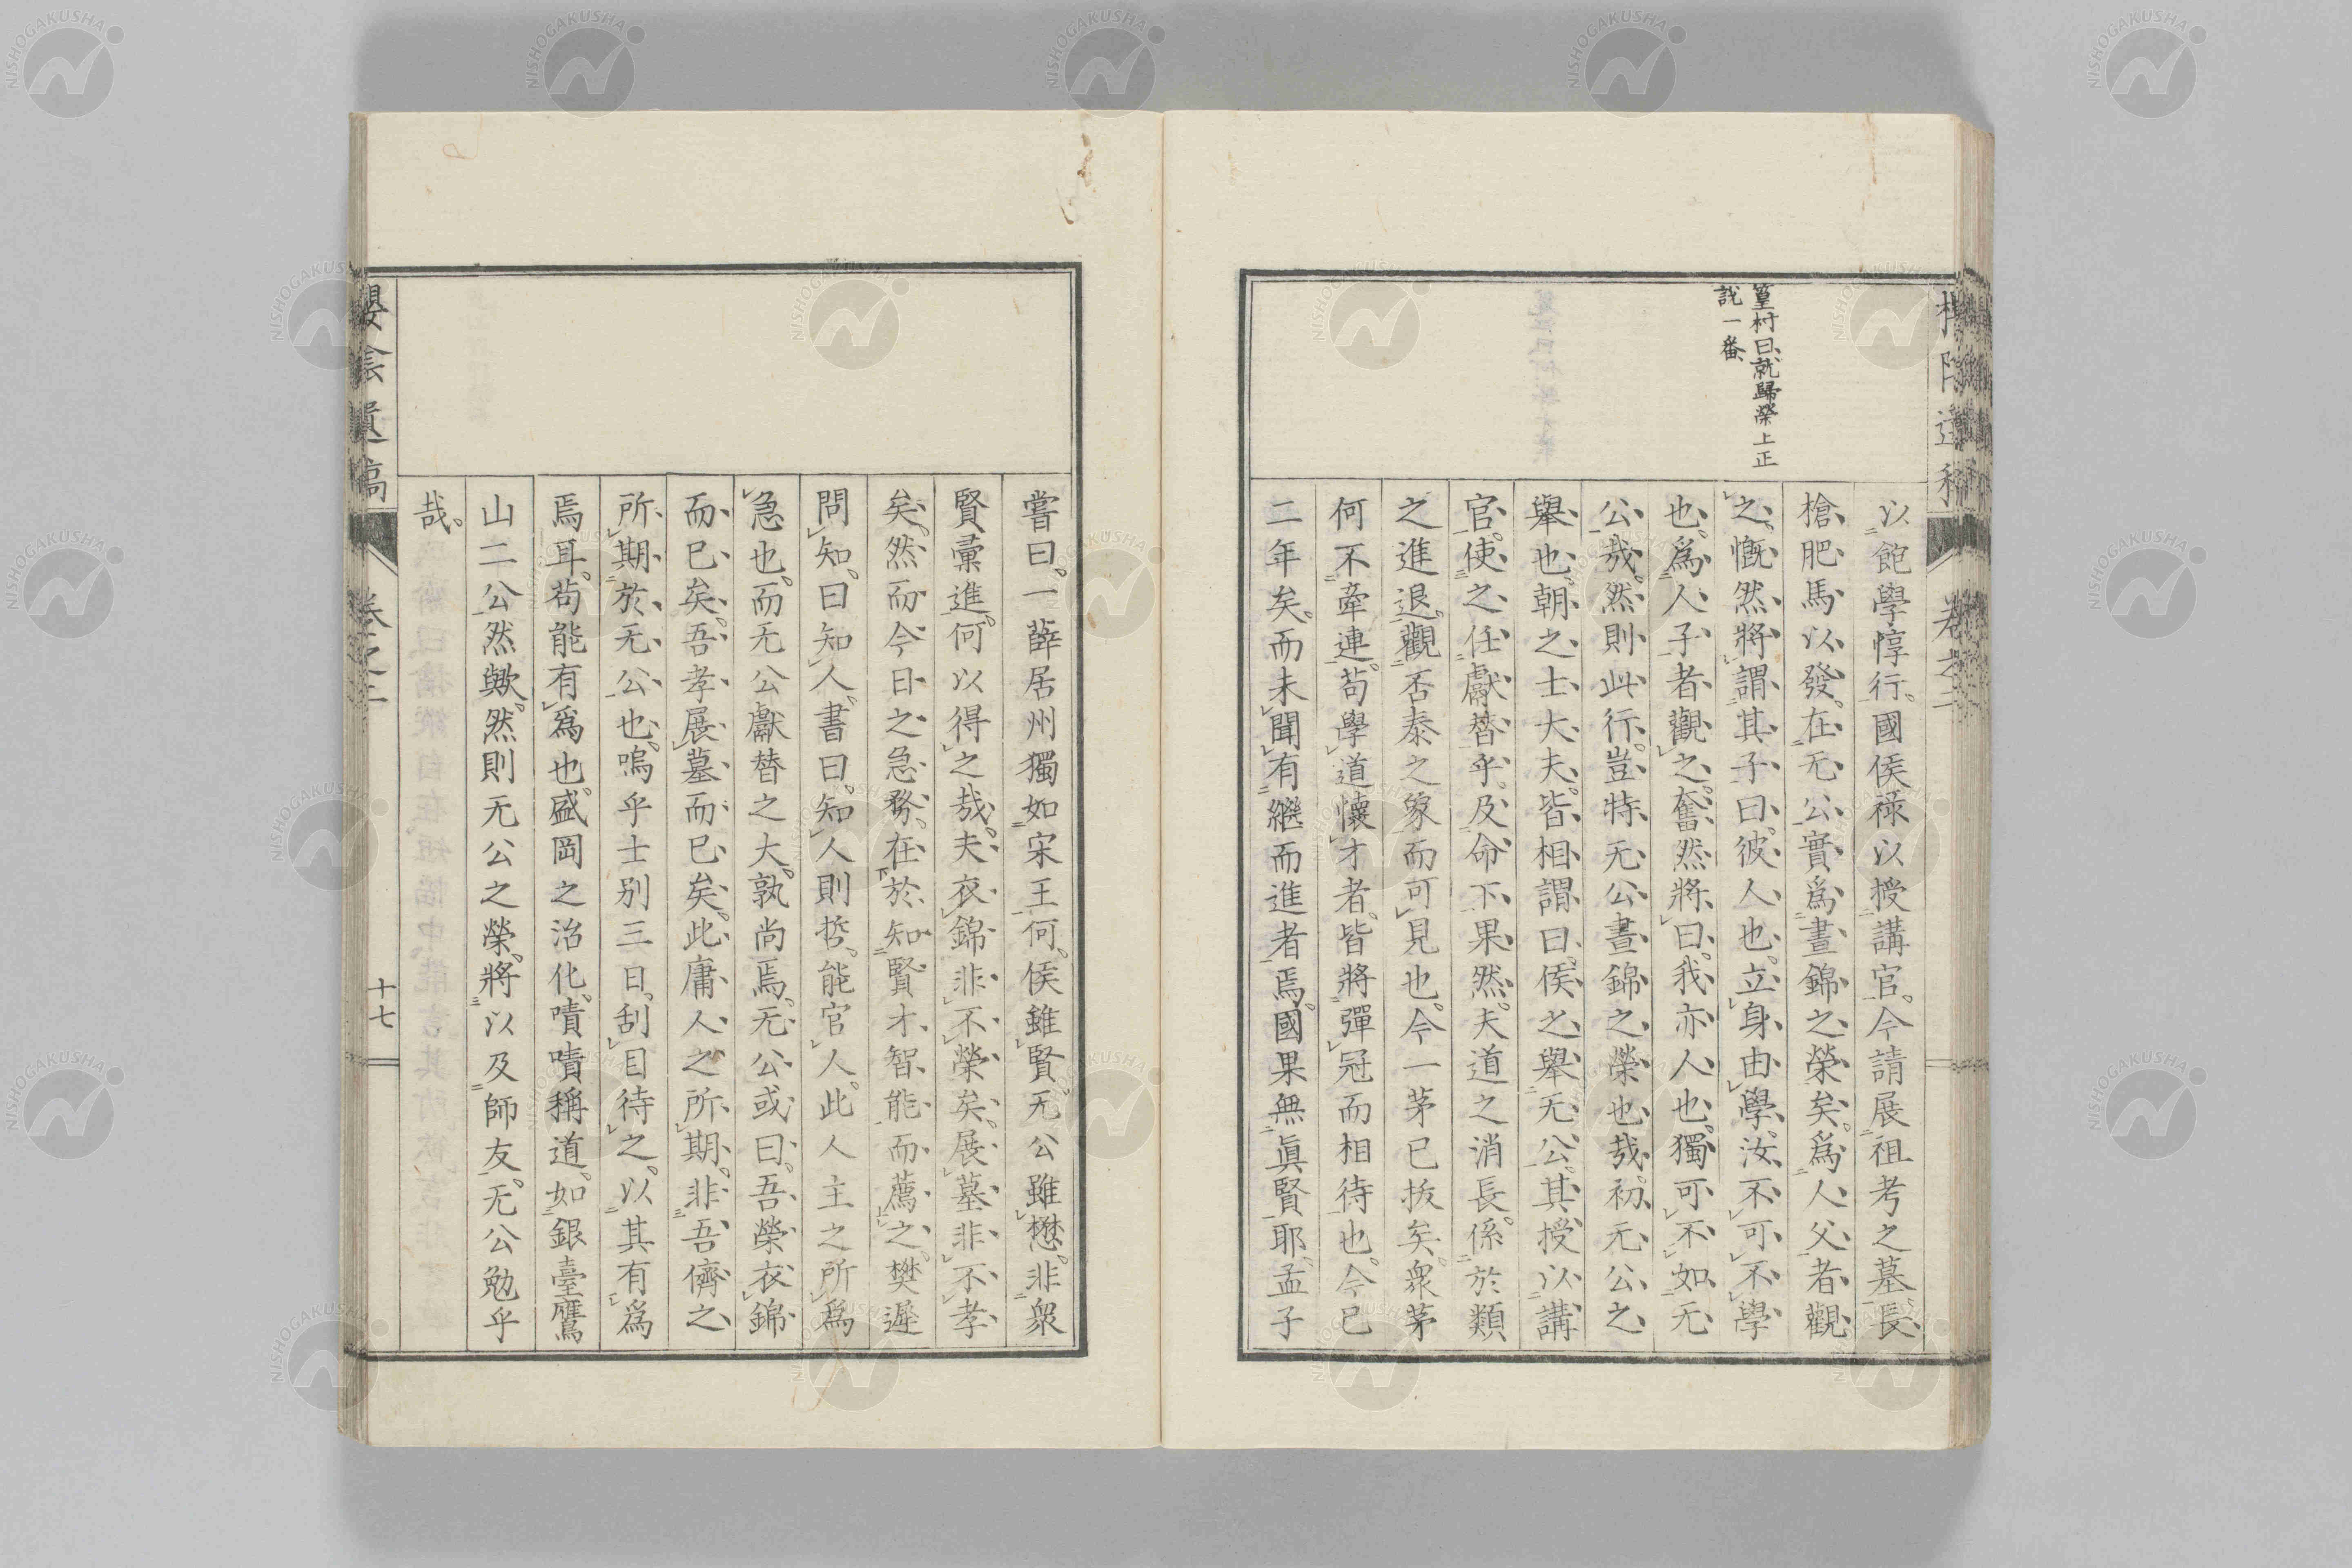 篁村曰就歸榮上正
説一番
以飽學惇行。國侯祿以授講官。今請展祖考之墓長
槍肥馬以發。在无公實爲晝錦之榮矣。爲人父者觀
之。慨然將謂其子曰。彼人也。立身由學。汝不可不學
也。爲人子者觀之。奮然將曰。我亦人也。獨可不如无
公哉。然則此行。豈特无公晝錦之榮也哉。初无公之
擧也。朝之士大夫。皆相謂曰。侯之擧无公。其授以講
官。使之任獻替乎。及命下果然。夫道之消長。係於類
之進退。觀否泰之象而可見也。今一茅已拔矣。衆茅
何不牽連。苟學道懷才者。皆將彈冠而相待也。今已
二年矣。而未聞有繼而進者焉。國果無眞賢耶。孟子
嘗曰。一薛居州獨如宋王何。侯雖賢。无公雖懋。非衆
賢彙進。何以得之哉。夫衣錦非不榮矣。展墓非不孝
矣。然而今日之急務。在於知賢才智能而薦之。樊遲
問知。曰知人。書曰。知人則哲。能官人。此人主之所爲
急也。而无公獻替之大。孰尚焉。无公或曰。吾榮衣錦
而已矣。吾孝展墓而已矣。此庸人之所期。非吾儕之
所期於无公也。嗚乎士別三日。刮目待之。以其有爲
焉耳。苟能有爲也。盛岡之治化。嘖嘖稱道。如銀臺鷹
山二公然歟。然則无公之榮。將以及師友。无公勉乎
哉。
櫻陰遺稿
卷之二
十七